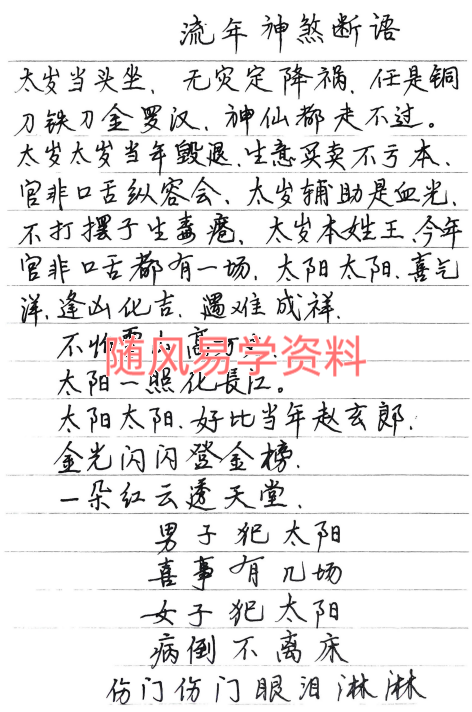 流年神煞断语
太岁当头坐，无灾定降祸，任是铜
刀铁刀金罗汉，神仙都走不过。
太岁太岁当年毁退，生意买卖不亏本，
官非口舌纵容会，太岁辅助是血光，
不打摆子生毒疮，太岁本姓王，今年
官非口舌都有一场，太阳太阳，喜气
洋，逢凶化吉，遇难成祥，
不怕雪山高万丈，
随风易学资料
太阳一照化長江。
太阳太阳，好比当年赵玄郎，
金光闪闪登金榜，
一朵红云透天堂，
男子犯太阳
喜事有几场
女子犯太阳
病倒不离床
伤门伤门眼泪淋淋